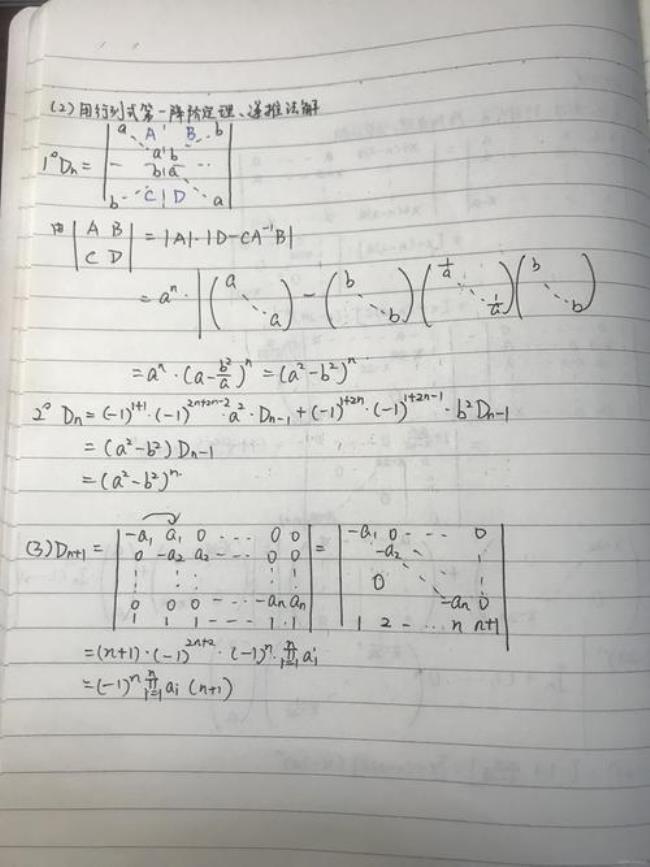 (2)用行列式第一降阶定理、递推法解
a A B b
a b
1° Dn = - b a ...
b C D a
由 | A B | = |A|·|D-CA⁻¹B|
C D
= aⁿ·|(a ⋱ a) - (b ⋱ b)(1/a ⋱ 1/a)(b ⋱ b)
= aⁿ·(a-b²/a)ⁿ = (a²-b²)ⁿ
2° Dn = (-1)^{1+1}·(-1)^{2n+2n-2}·a²·Dn-1 + (-1)^{1+2n}·(-1)^{1+2n-1}·b²Dn-1
= (a²-b²)Dn-1
= (a²-b²)ⁿ
-a₁ a₁ 0 ... 0 0 -a₁ 0 --- 0
(3) Dn+1 = 0 -a₂ a₂ --- 0 0 = -a₂
0
0 0 0 --- -an an -an 0
1 1 1 --- 1 1 1 2 - ... n n+1
= (n+1)·(-1)^{2n+2}·(-1)ⁿ·∏_{i=1}^{n} ai
= (-1)ⁿ ∏_{i=1}^{n} ai (n+1)